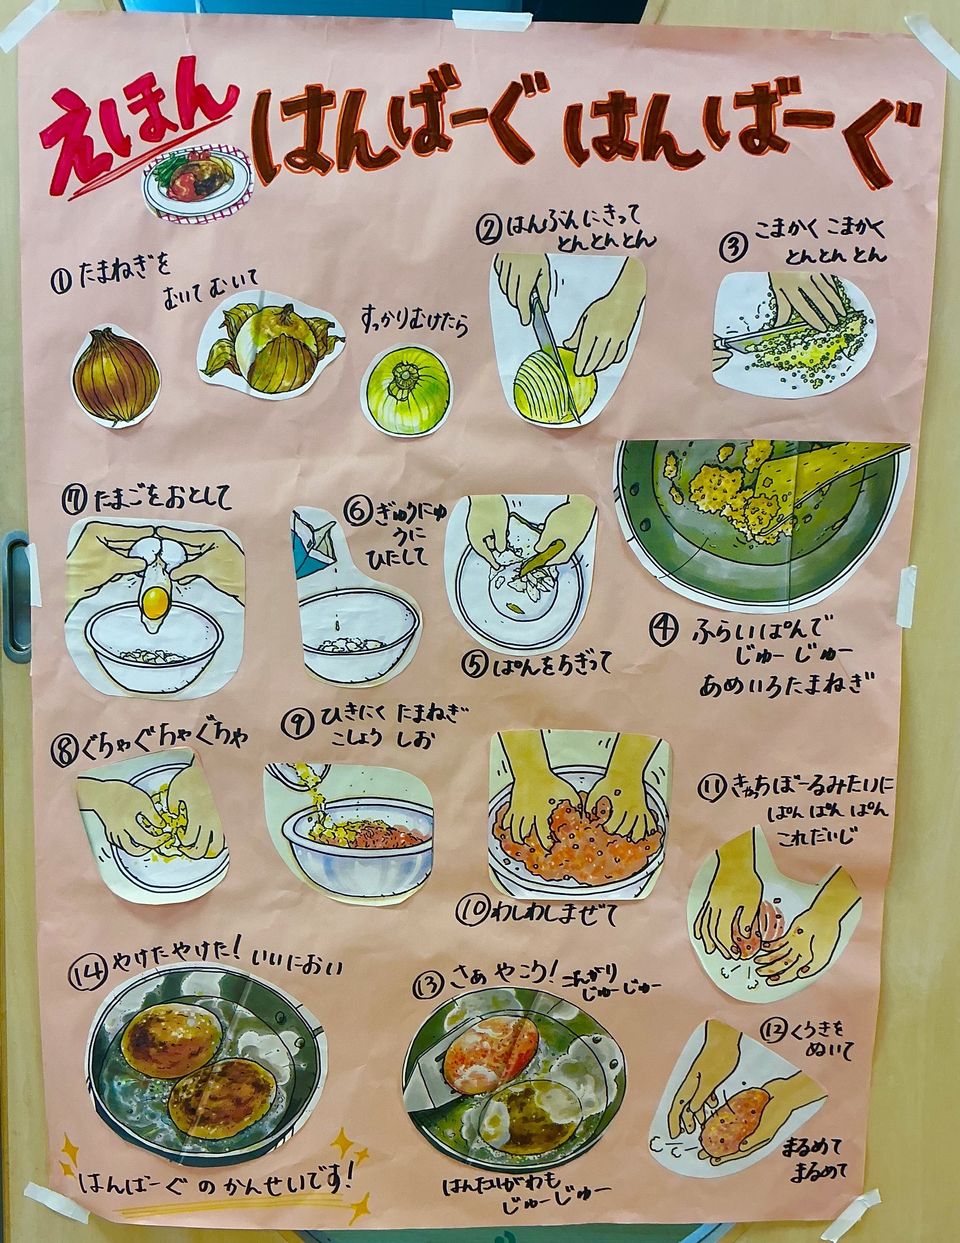 えほん
はんばーぐ はんばーぐ
①たまねぎを
むいて むいて
すっかりむけたら
②はんぶんにきって
とんとんとん
③こまかく こまかく
とんとん とん
④ふらいぱんで
じゅー じゅー
あめいろたまねぎ
⑤ぱんをちぎって
⑥ぎゅうにゅ
うに
ひたして
⑦たまごをおとして
⑧ぐちゃぐちゃぐちゃ
⑨ひきにく たまねぎ
こしょう しお
⑩わしわしまぜて
⑪きゃっちぼーるみたいに
ぱん ぱん ぱん
これだいじ
⑫くうきを
ぬいて
まるめて
まるめて
⑬さぁ やこう!
こんがり
じゅーじゅー
はんたいがわも
じゅーじゅー
⑭やけたやけた! いいにおい
はんばーぐ のかんせいです!